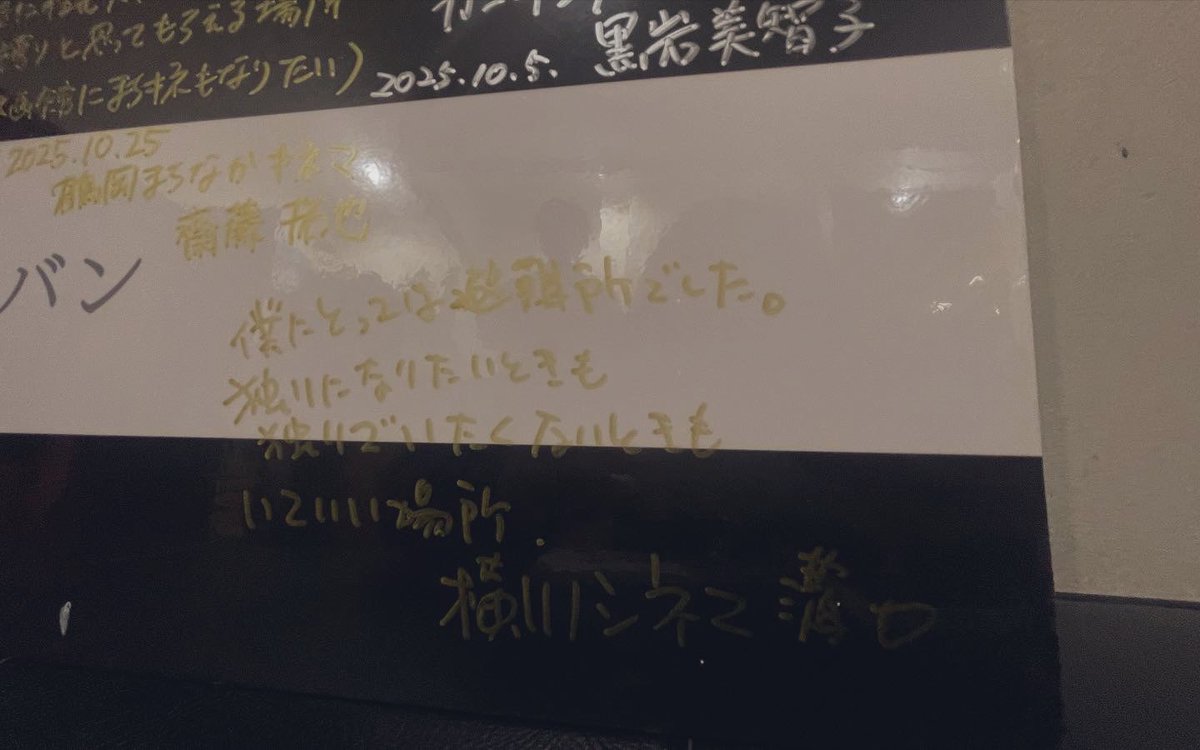 思ってもらえる場所
にまちキネもなりたい)
2025.10.5.
黒岩美智子
2025.10.25
鶴岡まちなかキネマ
齋藤拓也
バン
僕にとっては避難所でした。
独りになりたいときも
独りでいたくないときも
いていい場所.
横川シネマ 溝口